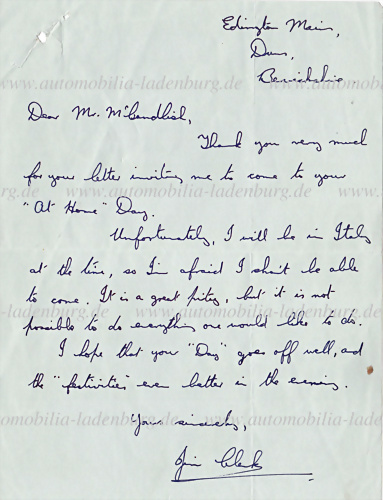 Edington Mains,
Duns,
Berwickshire.
www.automobilia-ladenburg.de
Dear Mr. M'Candlish,
Thank you very much
for your letter inviting me to come to your
"At Home" Day.
www.automobilia-ladenburg.de
Unfortunately, I will be in Italy
at the time, so I'm afraid I shan't be able
to come. It is a great pity, but it is not
possible to do everything one would like to do.
I hope that your "Day" goes off well, and
the "festivities" even better in the evening.
www.automobilia-ladenburg.de
Yours sincerely,
Jim Clark